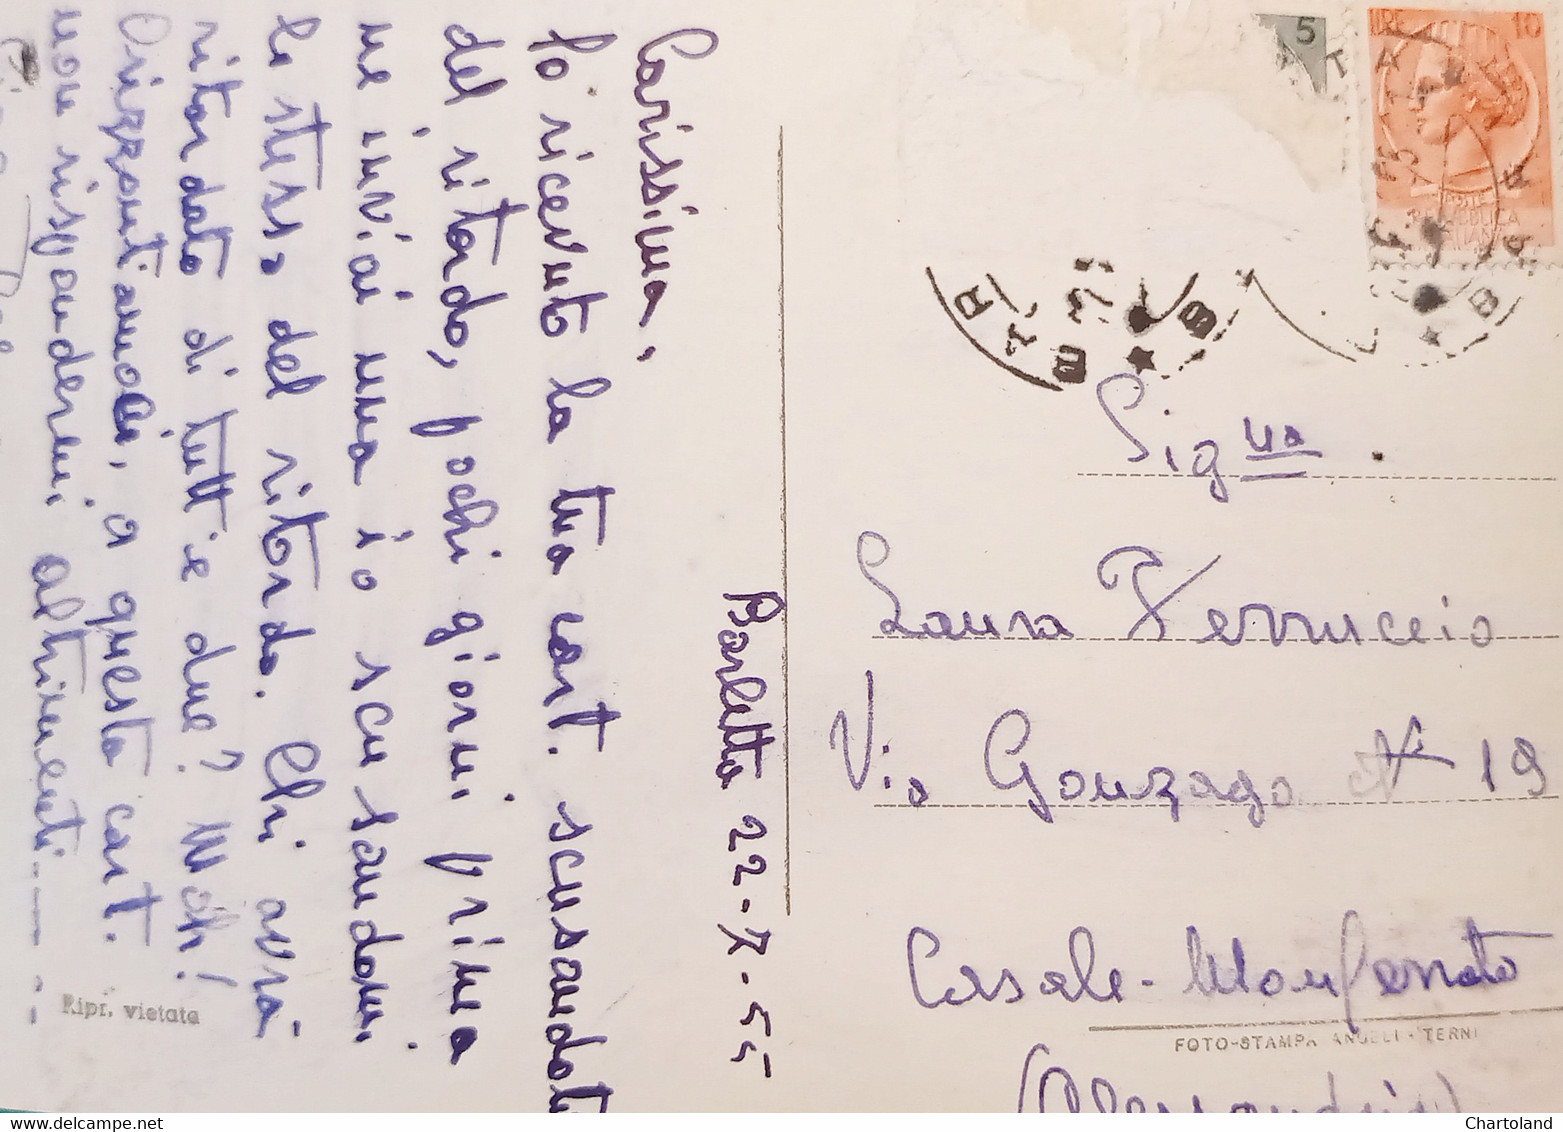 Barletta 22-X-55
Carissima,
fò ricevuto la tua cart. scusandoti
del ritardo, pochi giorni prima
ne inviai una io scusandomi
lo stesso del ritardo. Chi avrà
ritardato di tutt'e due? Mah!
Orizzontiamoci, a questa cart.
non rispondermi altrimenti
Ripr. vietata
5
LIRE 10
POSTE
REPUBBLICA
ITALIANA
Sig.na
Laura Ferruccio
Via Gonzaga N 19
Casale-Monferrato
FOTO-STAMPA ANGELI - TERNI
(Alessandria)
Chartoland